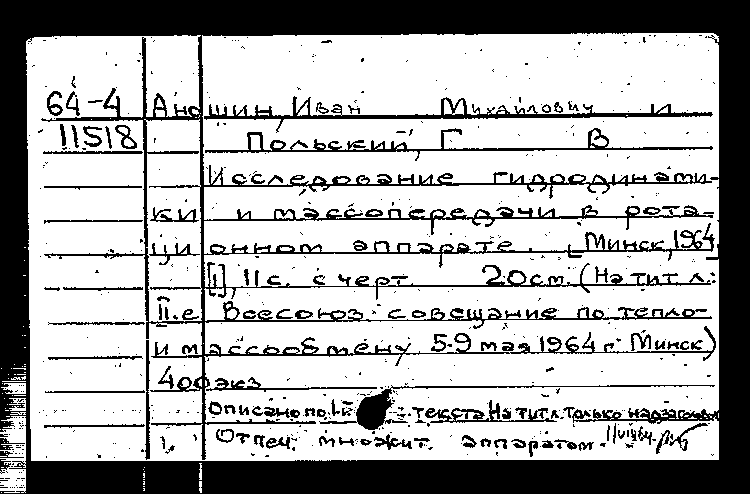 64-4 Аношин, Иван Михайлович и
11518 Польский, Г В
Исследование гидродинами-
ки и массопередачи в рота-
ционном аппарате. [Минск, 1964]
[1], 11 с. с черт. 20 см. (На тит. л.:
II-е Всесоюз. совещание по тепло-
и массообмену 5-9 мая 1964 г. Минск)
400 экз.
Описано по текста. На тит. л. только надзаголовок
Отпеч. множит. аппаратом.